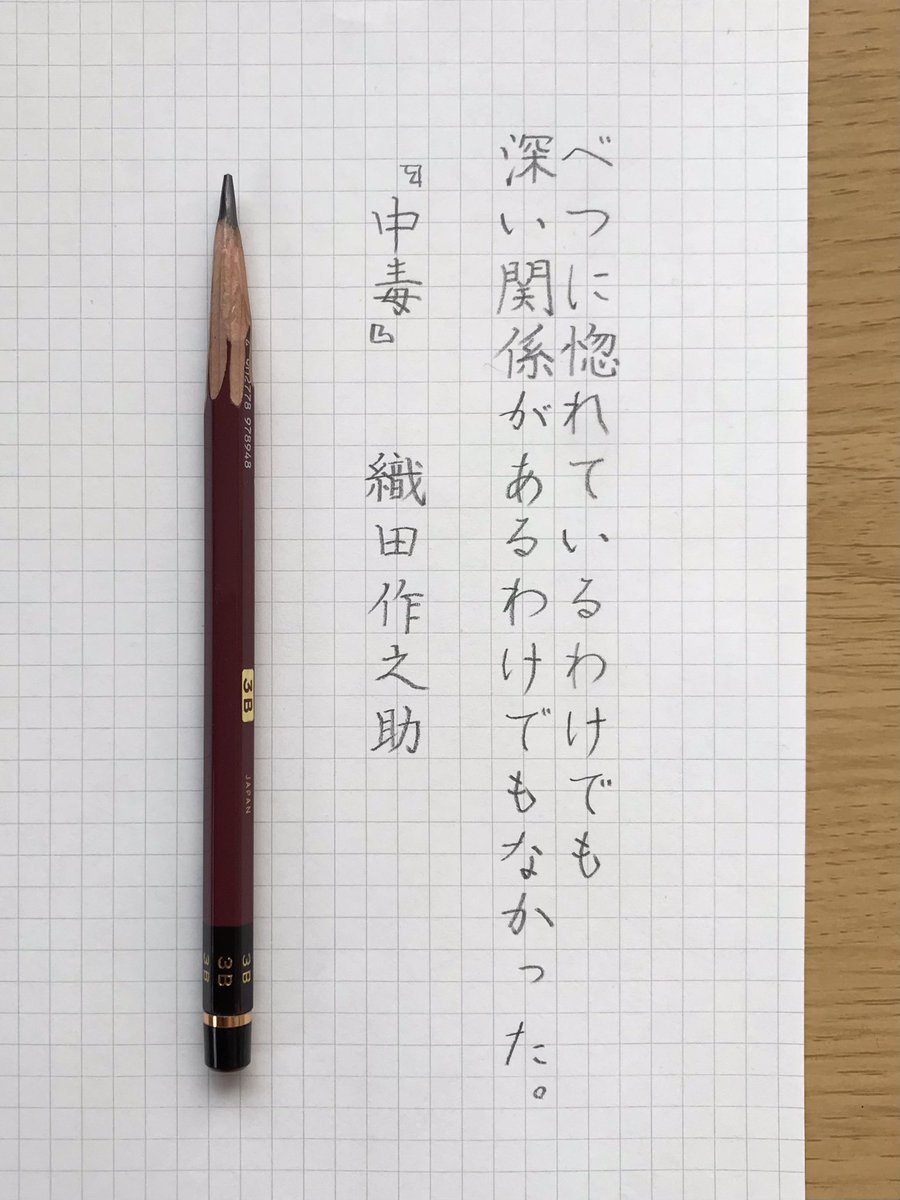 べつに惚れているわけでも
深い関係があるわけでもなかった。
『中毒』 織田作之助
978948
3B
JAPAN
3B
3B
3B